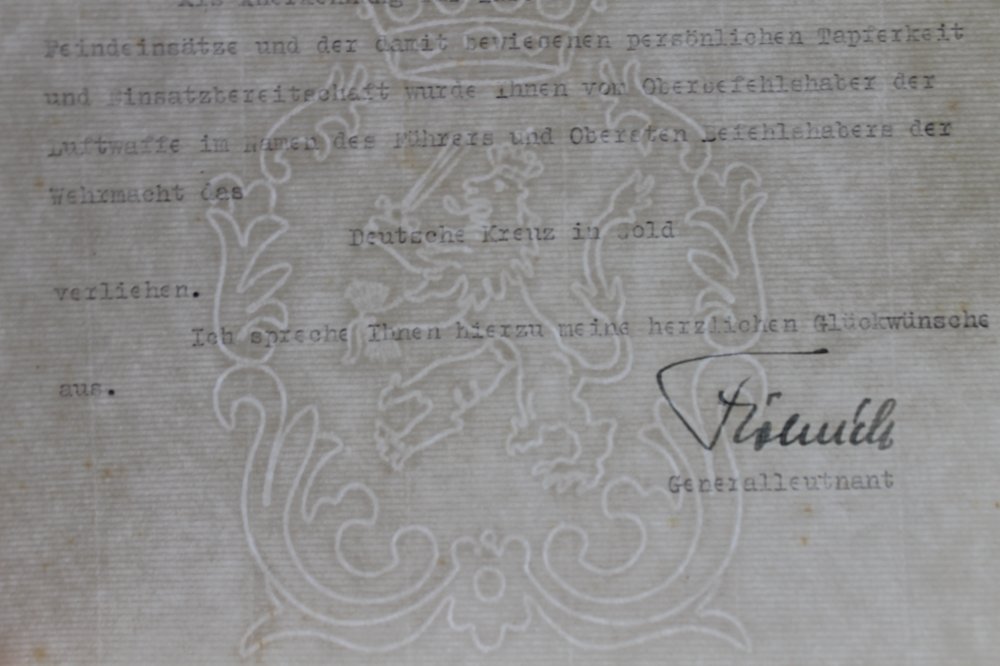 Feindeinsätze und der damit bewiesenen persönlichen Tapferkeit
und Einsatzbereitschaft wurde Ihnen vom Oberbefehlshaber der
Luftwaffe im Namen des Führers und Obersten Befehlshabers der
Wehrmacht das
Deutsche Kreuz in Gold
verliehen.
Ich spreche Ihnen hierzu meine herzlichen Glückwünsche
aus.
Generalleutnant